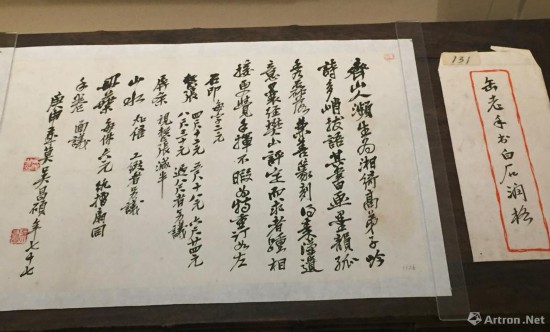 齊山人瀕生為湘綺高弟子吟
詩多峭拔語其書画墨韻孤
秀磊落兼善篆刻得秦漢遺
意曩經樊山評定而求者踵相
接更覺手揮不暇為特重訂如左
石印每字二元
整張 四尺十二元 五尺十八元 六尺廿四元
八尺三十元 過八尺者另議
屏条 視整張減半
山水 加倍 工緻者另議
冊葉 每件六元 紈摺扇同
手卷 面議
庚申歲莫吳昌碩年七十七
131
缶老手書白石潤格
Artron.Net